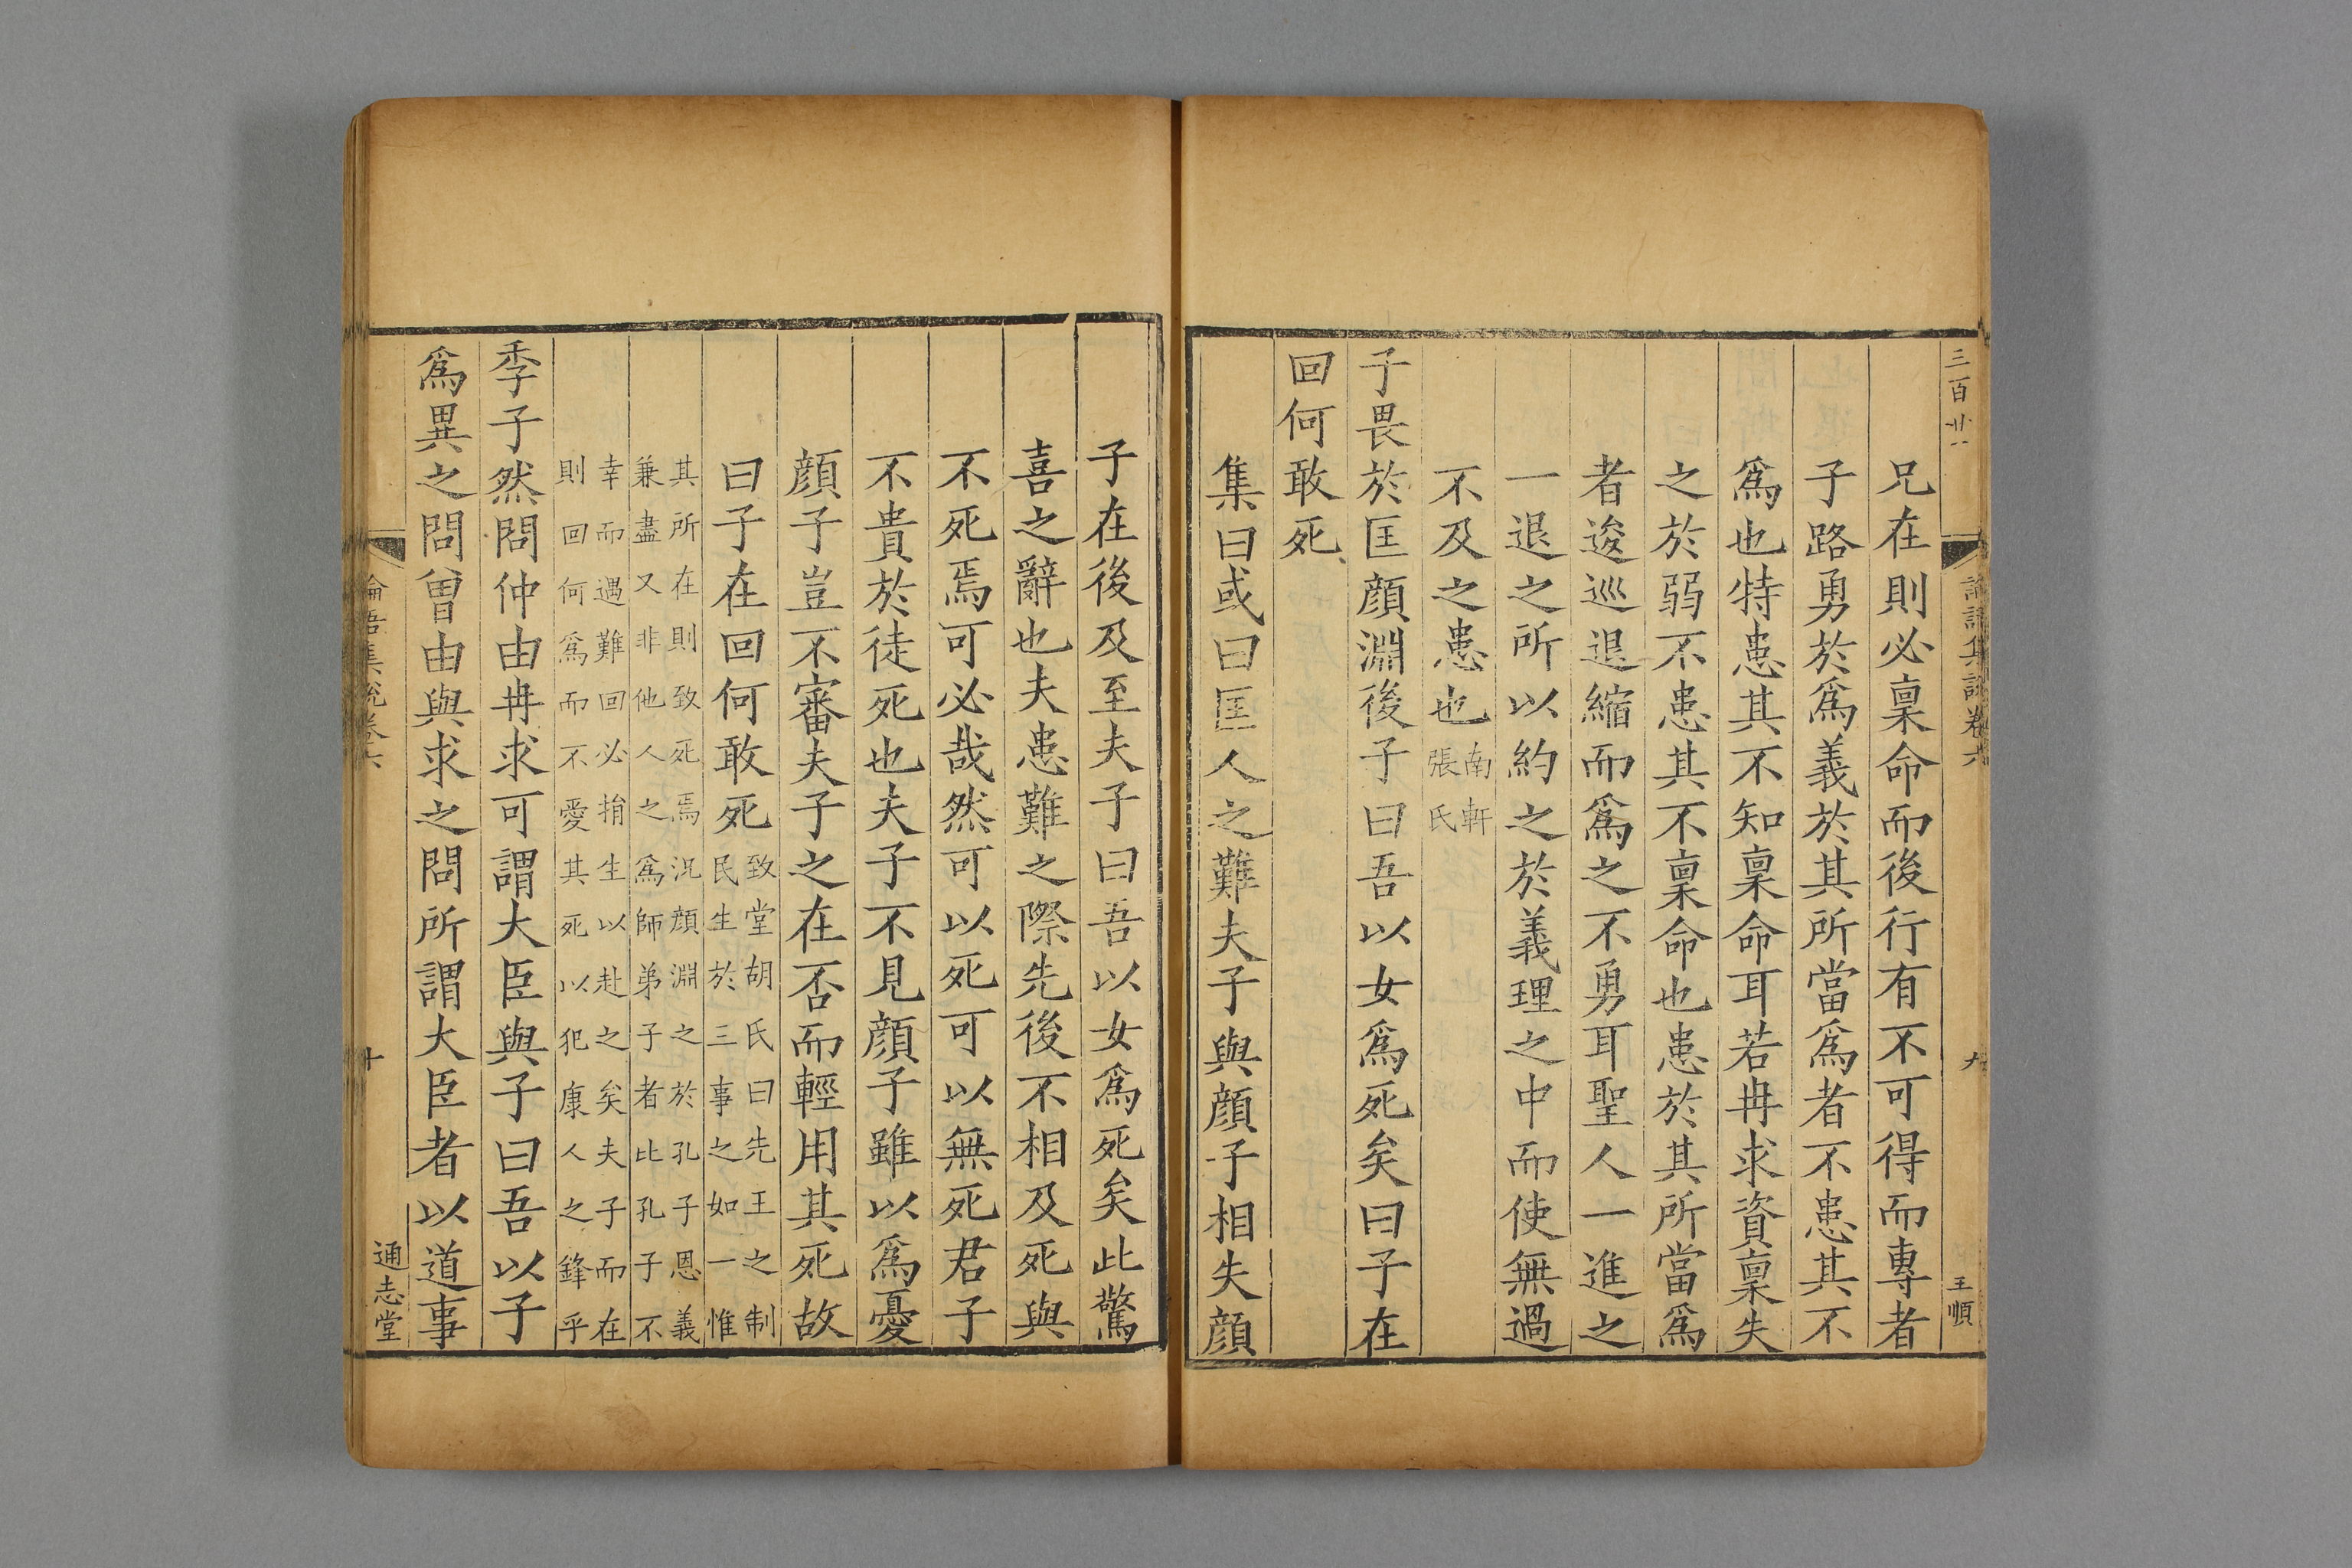 三百廿八
論語集說卷六
九
王順
兄在則必稟命而後行有不可得而專者
子路勇於爲義於其所當爲者不患其不
爲也特患其不知稟命耳若冉求資稟失
之於弱不患其不稟命也患於其所當爲
者逡巡退縮而爲之不勇耳聖人一進之
一退之所以約之於義理之中而使無過
不及之患也南軒張氏
子畏於匡顏淵後子曰吾以女爲死矣曰子在
回何敢死
集曰或曰匡人之難夫子與顏子相失顏
子在後及至夫子曰吾以女爲死矣此驚
喜之辭也夫患難之際先後不相及死與
不死焉可必哉然可以死可以無死君子
不貴於徒死也夫子不見顏子雖以爲憂
顏子豈不審夫子之在否而輕用其死故
曰子在回何敢死致堂胡氏曰先王之制民生於三事之如一惟
其所在則致死焉況顏淵之於孔子恩義
兼盡又非他人之爲師弟子者比孔子不
幸而遇難回必捐生以赴之矣夫子而在
則回何爲而不愛其死以犯康人之鋒乎
季子然問仲由冉求可謂大臣與子曰吾以子
爲異之問曾由與求之問所謂大臣者以道事
論語集說卷六
十
通志堂